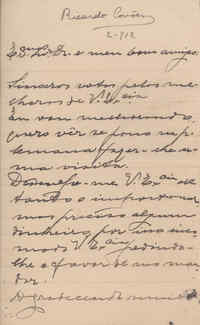 Ricardo
2-912
Ex.mo Sr. Dr. e meu bom amigo.
Sinceros votos pelos me-
lhoras de V. Ex.cia
Eu vou melhorando,
quero vêr se pouso na p.
semana fazer-lhe a m.a
visita.
Desculpe-me V. Ex.cia de
tanto o importunar
mas preciso algum
dinheiro, por isso inco-
modo V. Ex.cia pedindo-
lhe o favor de m'o man-
dar.
Agradecendo muito